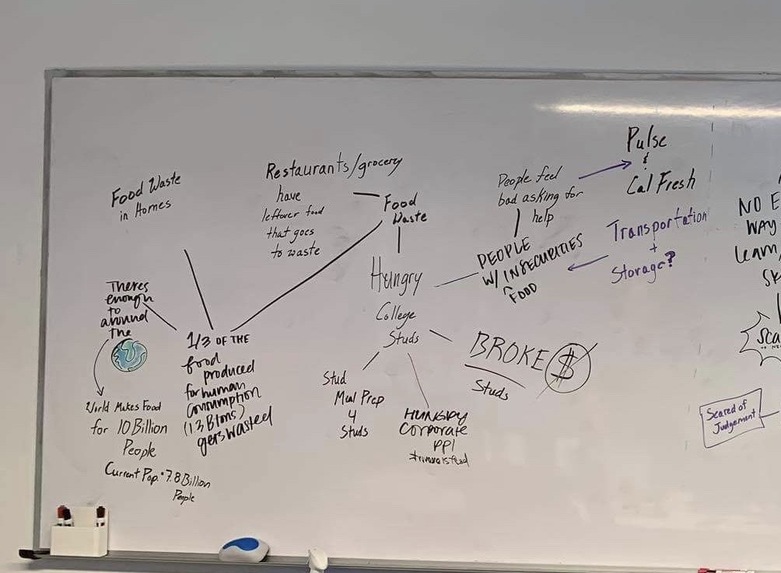 Food Waste
in Homes
Restaurants/grocery
have
leftover food
that goes
to waste
Food
Waste
People feel
bad asking for
help
Pulse
&
Cal Fresh
Transportation
+
Storage?
PEOPLE
W/ INSECURITIES
FOOD
Hungry
College
Studs
BROKE $
Studs
Theres
enough
to
around
the
World Makes Food
for 10 Billion
People
Current Pop. 7.8 Billion
People
1/3 OF THE
food
produced
for human
consumption
gets wasted
Stud
Meal Prep
4
Studs
HUNGRY
Corporate
PPl
NO E
WAY
Learn
SK
Sca
Scared of
Judgement